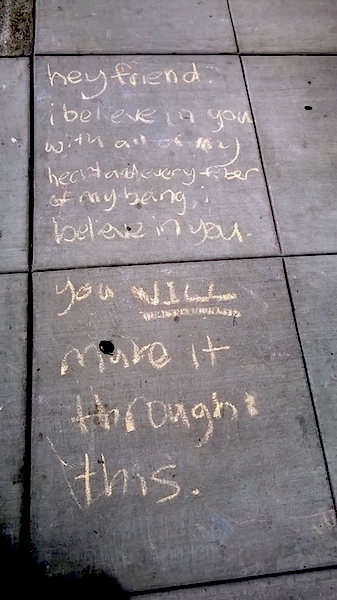 hey friend.
i believe in you
with all of my
heart and every fiber
of my being, i
believe in you.
you WILL
make it
through
this.